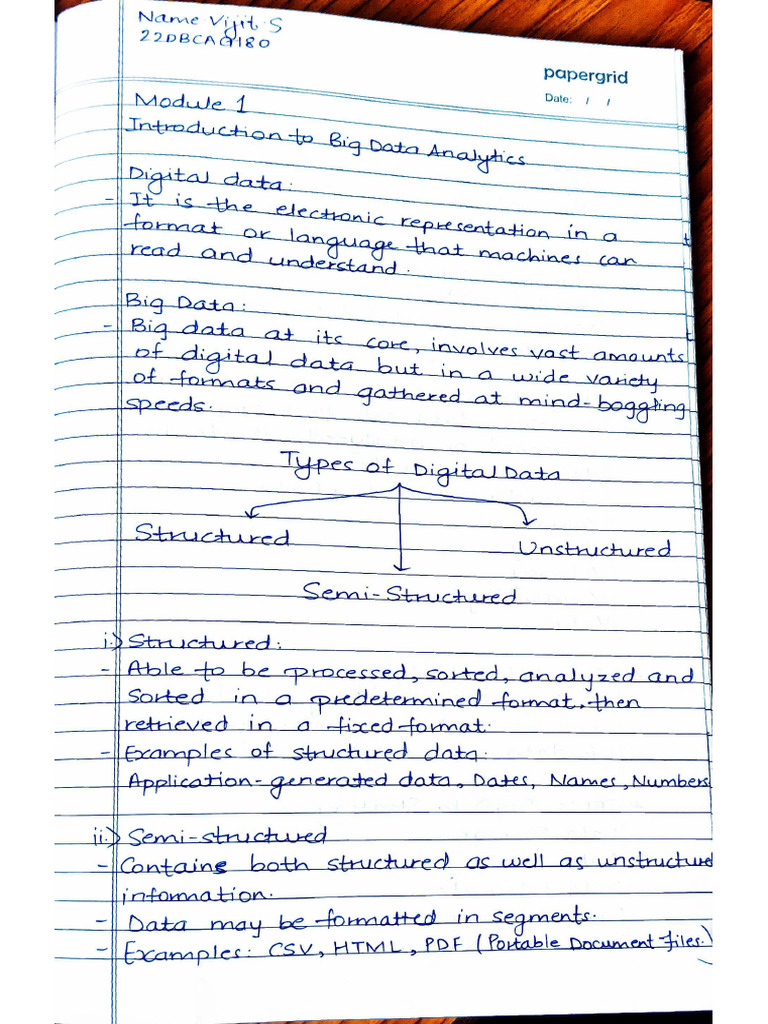 Name Vijit S
22DBCAG180
papergrid
Date: / /
Module 1
Introduction to Big Data Analytics
Digital data:
- It is the electronic representation in a
format or language that machines can
read and understand.
Big Data:
- Big data at its core, involves vast amounts
of digital data but in a wide variety
of formats and gathered at mind-boggling
speeds.
Types of Digital Data
Structured
Unstructured
Semi-Structured
i.) Structured:
- Able to be processed, sorted, analyzed and
Sorted in a predetermined format, then
retrieved in a fixed format.
- Examples of structured data:
Application-generated data, Dates, Names, Numbers
ii.) Semi-structured
- Contains both structured as well as unstructured
information.
- Data may be formatted in segments.
- Examples: CSV, HTML, PDF (Portable Document files.)